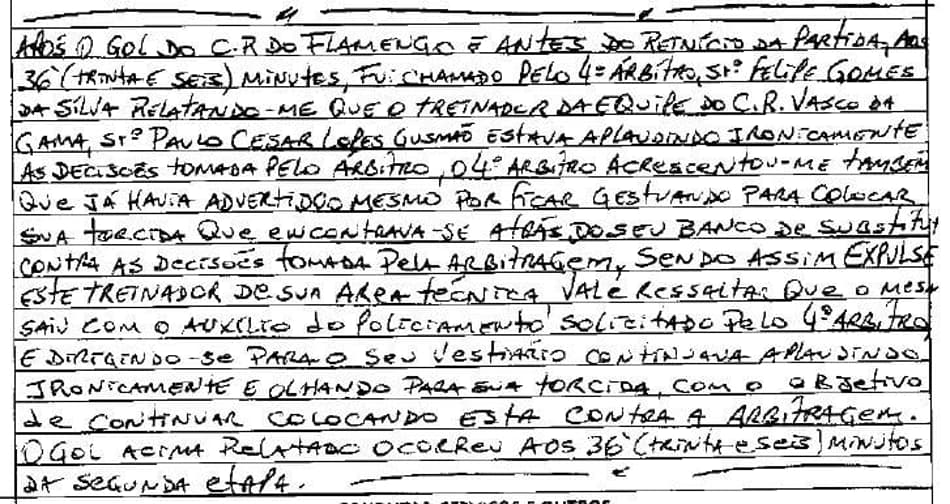 APÓS O GOL DO C.R DO FLAMENGO E ANTES DO REINÍCIO DA PARTIDA, AOS
36'(TRINTA E SEIS) MINUTES, FUI CHAMADO PELO 4º ÁRBITRO, Srº FELIPE GOMES
DA SILVA RELATANDO-ME QUE O TREINADOR DA EQUIPE DO C.R. VASCO DA
GAMA, Srº PAULO CESAR LOPES GUSMÃO ESTAVA APLAUDINDO IRONICAMENTE
AS DECISÕES TOMADA PELO ÁRBITRO, O 4º ARBITRO ACRESCENTOU-ME TAMBÉM
QUE JÁ HAVIA ADVERTIDO O MESMO POR FICAR GESTUANDO PARA COLOCAR
SUA TORCIDA QUE ENCONTRAVA-SE ATRÁS DO SEU BANCO DE SUBSTITUT
CONTRA AS DECISÕES TOMADA PELA ARBITRAGEM, SENDO ASSIM EXPULSE
ESTE TREINADOR DE SUA AREA TÉCNICA, VALE RESSALTAR QUE O MESM
SAIU COM O AUXÍLIO DO POLICIAMENTO SOLICITADO PELO 4º ARBITRO
E DIRIGINDO-SE PARA O SEU VESTIÁRIO CONTINUAVA APLAUDINDO
IRONICAMENTE E OLHANDO PARA SUA TORCIDA, COM O OBJETIVO
DE CONTINUAR COLOCANDO ESTA CONTRA A ARBITRAGEM.
O GOL ACIMA RELATADO OCORREU AOS 36'(TRINTA E SEIS) MINUTOS
DA SEGUNDA ETAPA.